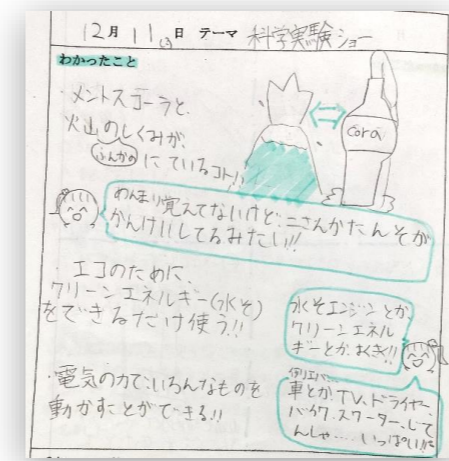 12月11日 テーマ 科学実験ショー
わかったこと
・メントスコーラと、
火山のしくみが、
ふんかの
にているコト!!
cora
あんまり覚えてないけど、二さんかたんそが
かんけいしてるみたい!!
・エコのために、
クリーンエネルギー(水そ)
をできるだけ使う!!
水そエンジンとか
クリーンエネル
ギーとか
・電気の力で、いろんなものを
動かすことができる!!
車とか、TV、ドライヤー、
バイク、スクーター、じて
んしゃ……いっぱい!!